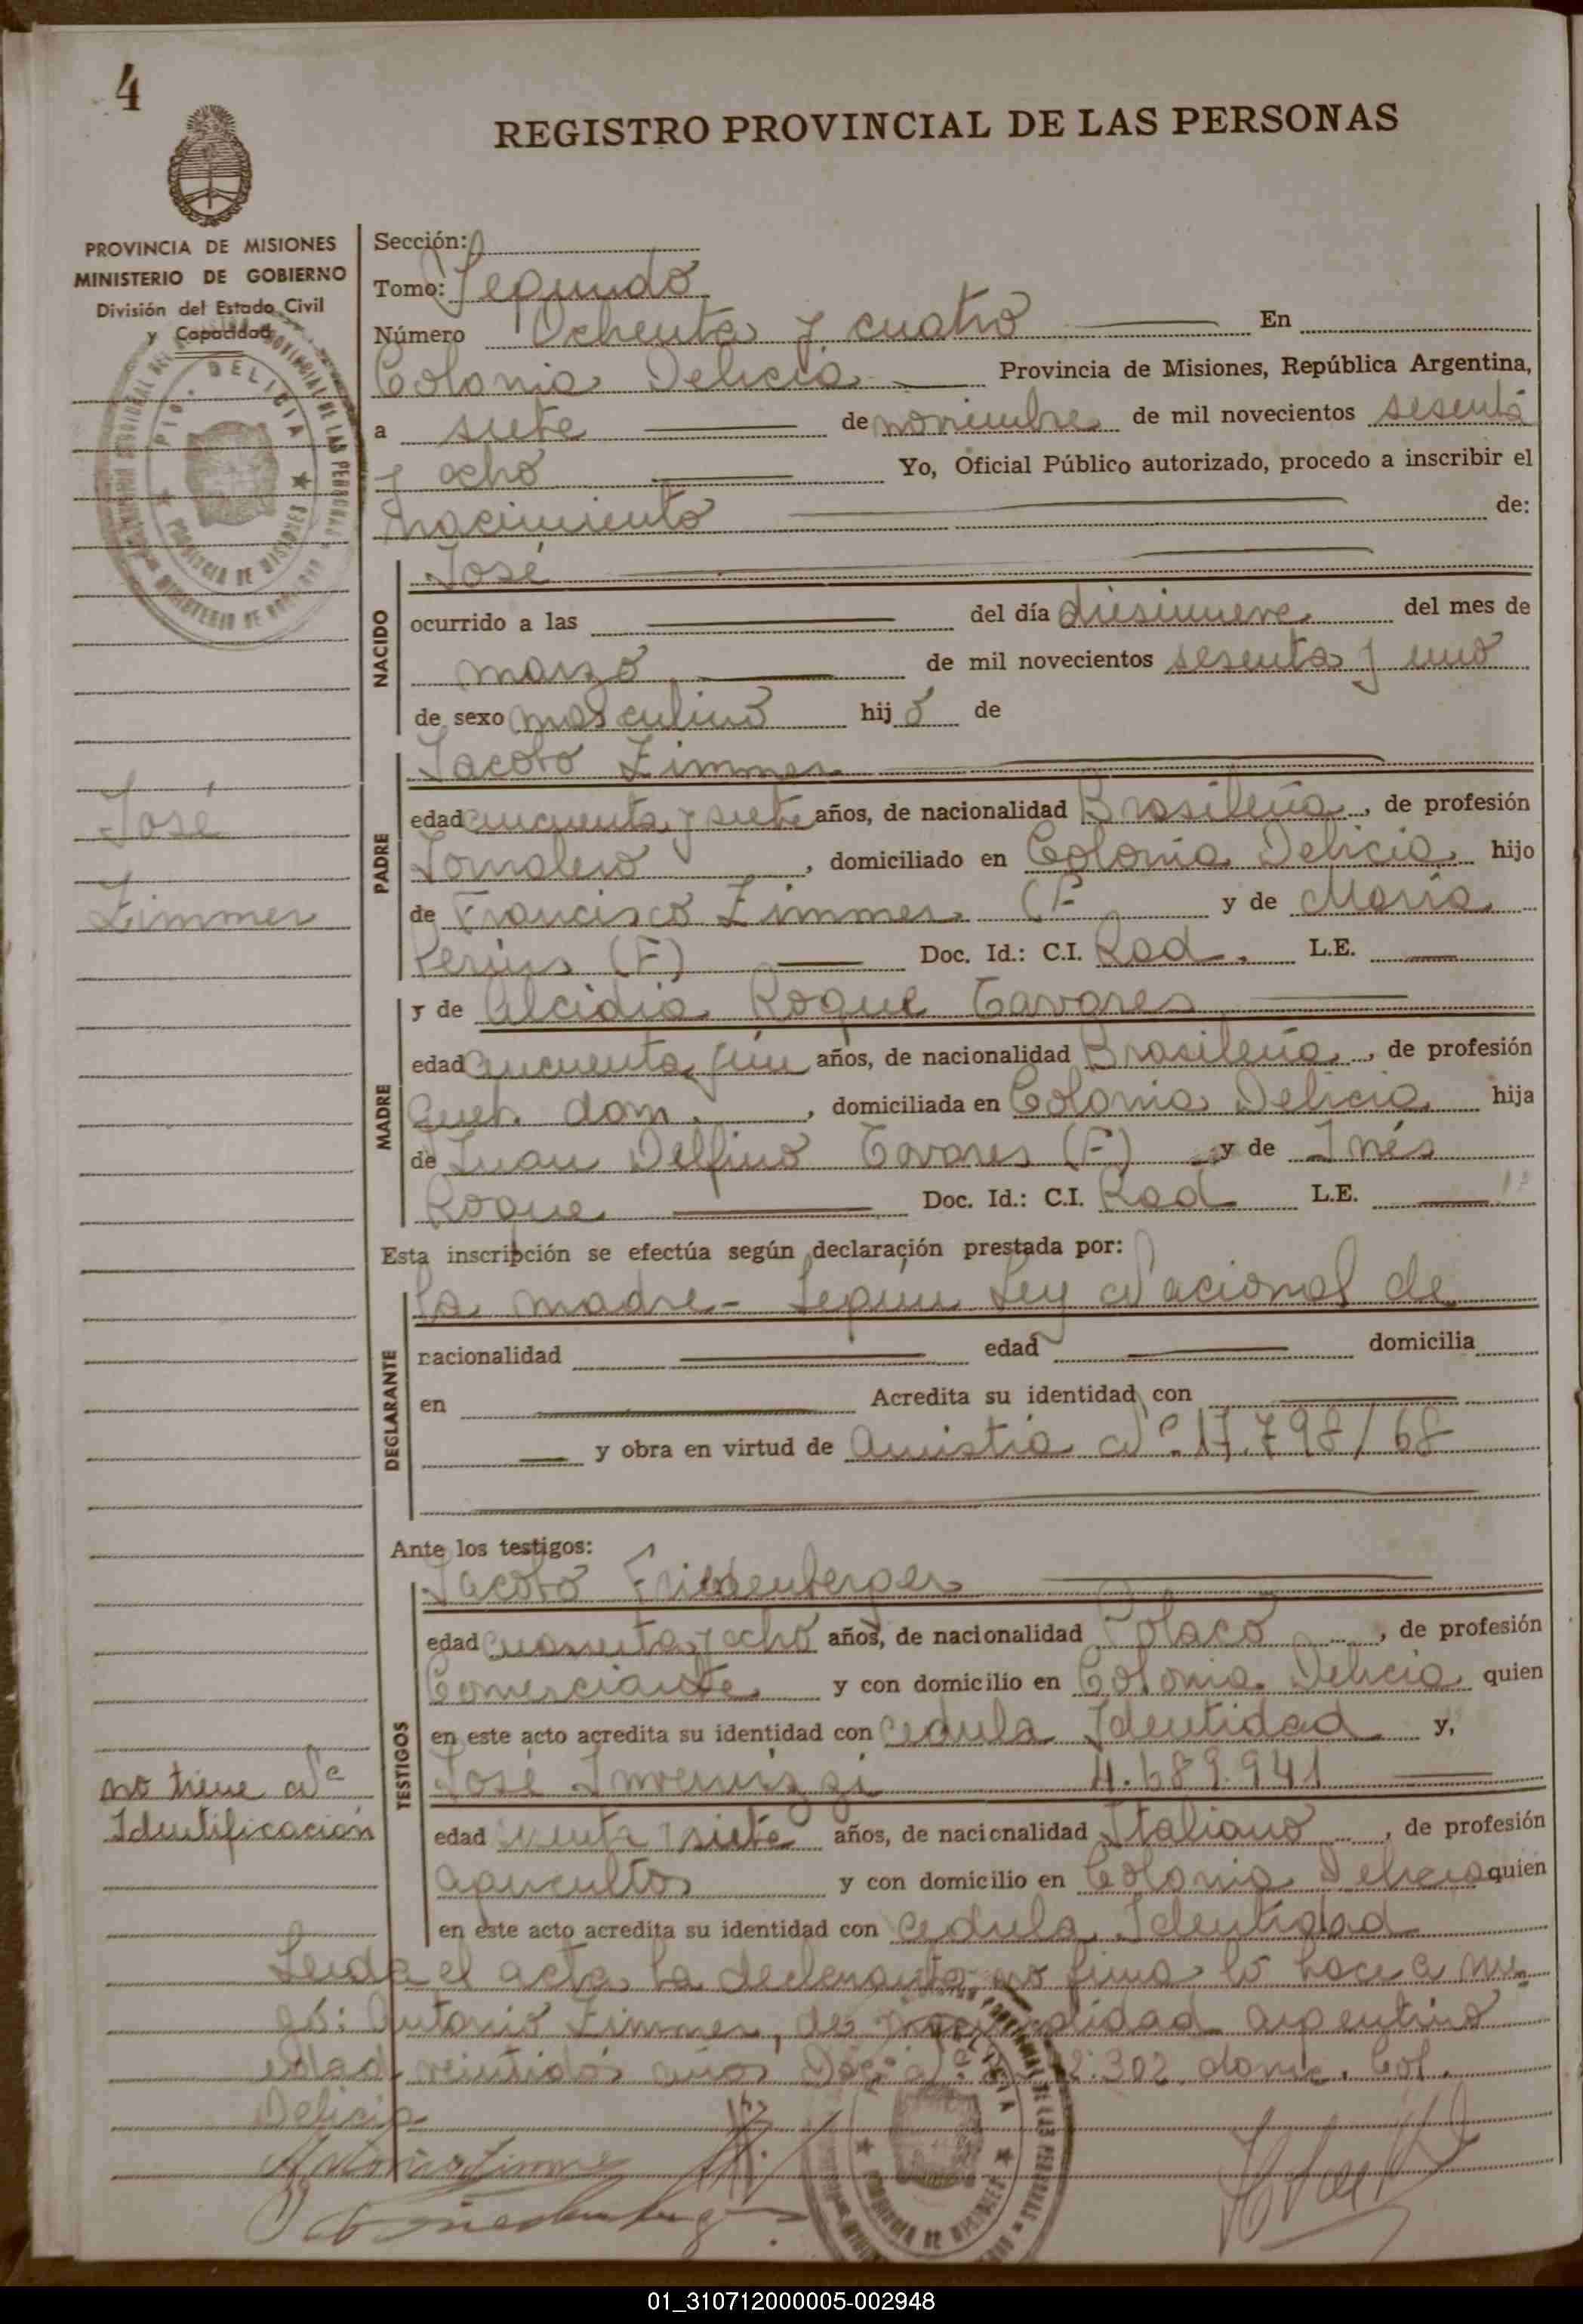 4
REGISTRO PROVINCIAL DE LAS PERSONAS
PROVINCIA DE MISIONES
MINISTERIO DE GOBIERNO
División del Estado Civil
y Capacidad
Sección:
Tomo: Segundo
Número Ochenta y cuatro En
Colonia Delicia Provincia de Misiones, República Argentina,
a siete de noviembre de mil novecientos sesenta
y ocho Yo, Oficial Público autorizado, procedo a inscribir el
nacimiento de:
NACIDO
José
ocurrido a las del día diesinueve del mes de
marzo de mil novecientos sesenta y uno
de sexo masculino hij o de
José
Zimmer
PADRE
Jacobo Zimmer
edad cincuenta y siete años, de nacionalidad Brasileña, de profesión
Jornalero, domiciliado en Colonia Delicia hijo
de Francisco Zimmer (F y de María
(F) Doc. Id.: C.I. Rad. L.E.
MADRE
y de Alcidia Roque Tavares
edad cincuenta y un años, de nacionalidad Brasileña, de profesión
Queh. dom., domiciliada en Colonia Delicia hija
de Juan Delfino Tavares (F) y de Inés
Roque Doc. Id.: C.I. Rad L.E.
Esta inscripción se efectúa según declaración prestada por:
DECLARANTE
la madre - Según Ley Nacional de
nacionalidad edad domicilia
en Acredita su identidad con
y obra en virtud de Amistia Nº 17.798/68
Ante los testigos:
TESTIGOS
Jacobo Friedenberger
edad cuarenta y ocho años, de nacionalidad Polaco, de profesión
Comerciante y con domicilio en Colonia Delicia quien
en este acto acredita su identidad con cedula Identidad y,
José 4.689.941
no tiene Nº
Identificación
edad siete años, de nacionalidad Italiano, de profesión
agricultor y con domicilio en Colonia Delicia quien
en este acto acredita su identidad con cedula Identidad
Leida el acta la declarante no firma lo hace a rue-
go: Antonio Zimmer, de nacionalidad argentino
edad veintidós años 302 domic. Col.
Delicia
Antonio Zimmer
01_310712000005-002948